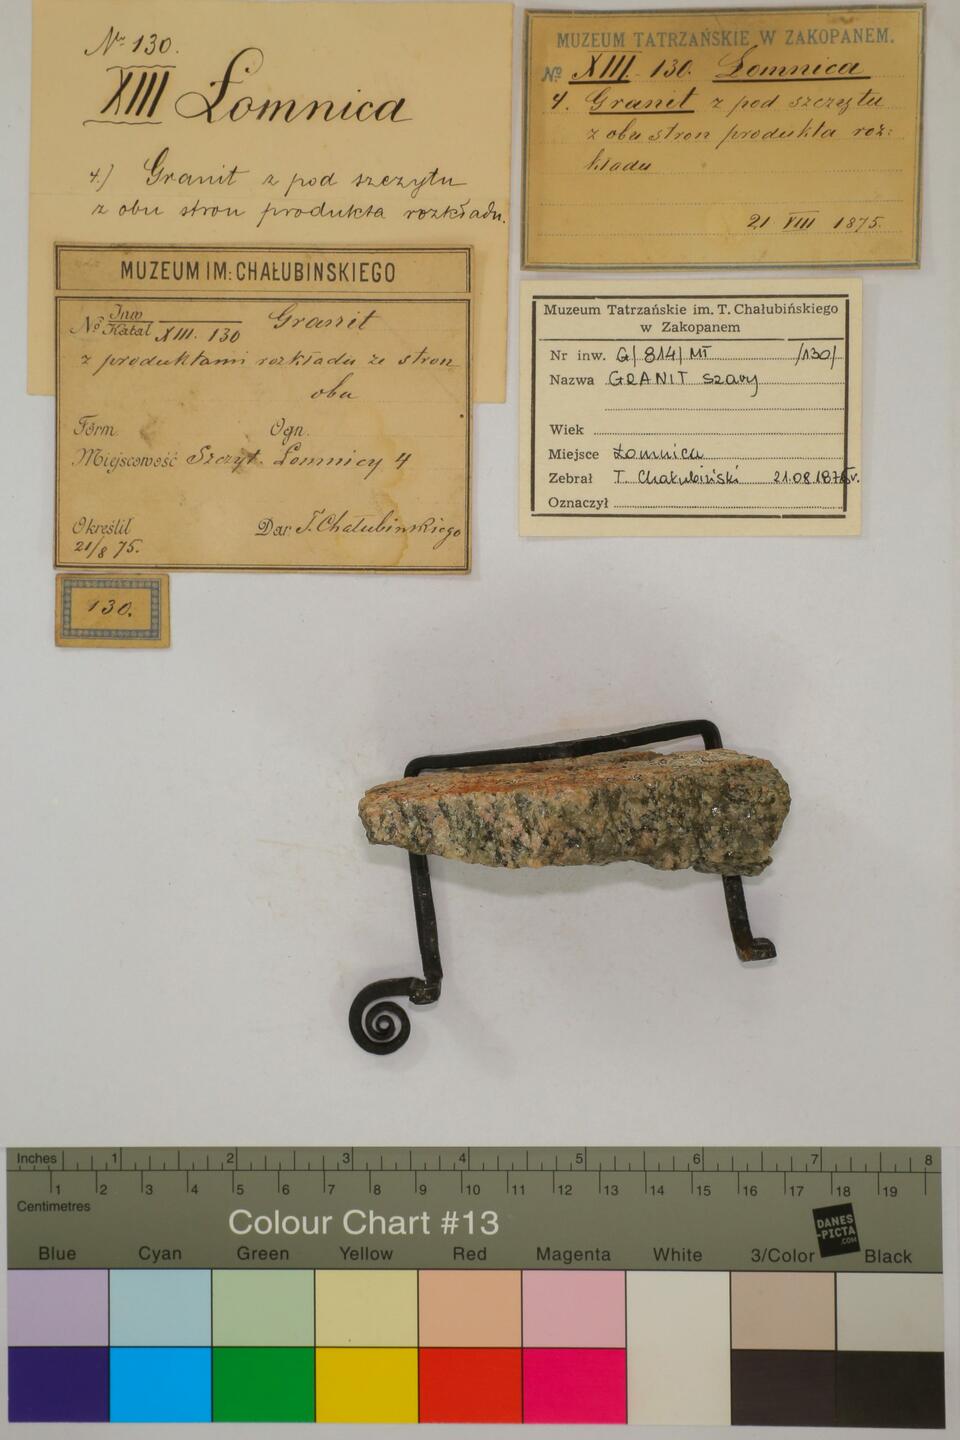 № 130.
XIII Łomnica
4.) Granit z pod szczytu
z obu stron produkta rozkładu.
MUZEUM TATRZAŃSKIE W ZAKOPANEM.
№ XIII. 130. Łomnica
4. Granit z pod szczytu
z obu stron produkta roz:
kładu
21 VIII 1875.
MUZEUM IM: CHAŁUBINSKIEGO
№ Inw Katal XIII. 130 Granit
z produktami rozkładu ze stron
obu
Form. Ogn.
Miejscowość Szczyt. Łomnicy 4
Określił Dar. T. Chałubinskiego
21/8 75.
Muzeum Tatrzańskie im. T. Chałubińskiego
w Zakopanem
Nr inw. G/814/MT /130/
Nazwa GRANIT szary
Wiek
Miejsce Łomnica
Zebrał T. Chałubiński 21.08.1875r.
Oznaczył
130.
Inches 1 2 3 4 5 6 7 8
1 2 3 4 5 6 7 8 9 10 11 12 13 14 15 16 17 18 19
Centimetres
Colour Chart #13
DANES
-PICTA
.COM
Blue Cyan Green Yellow Red Magenta White 3/Color Black